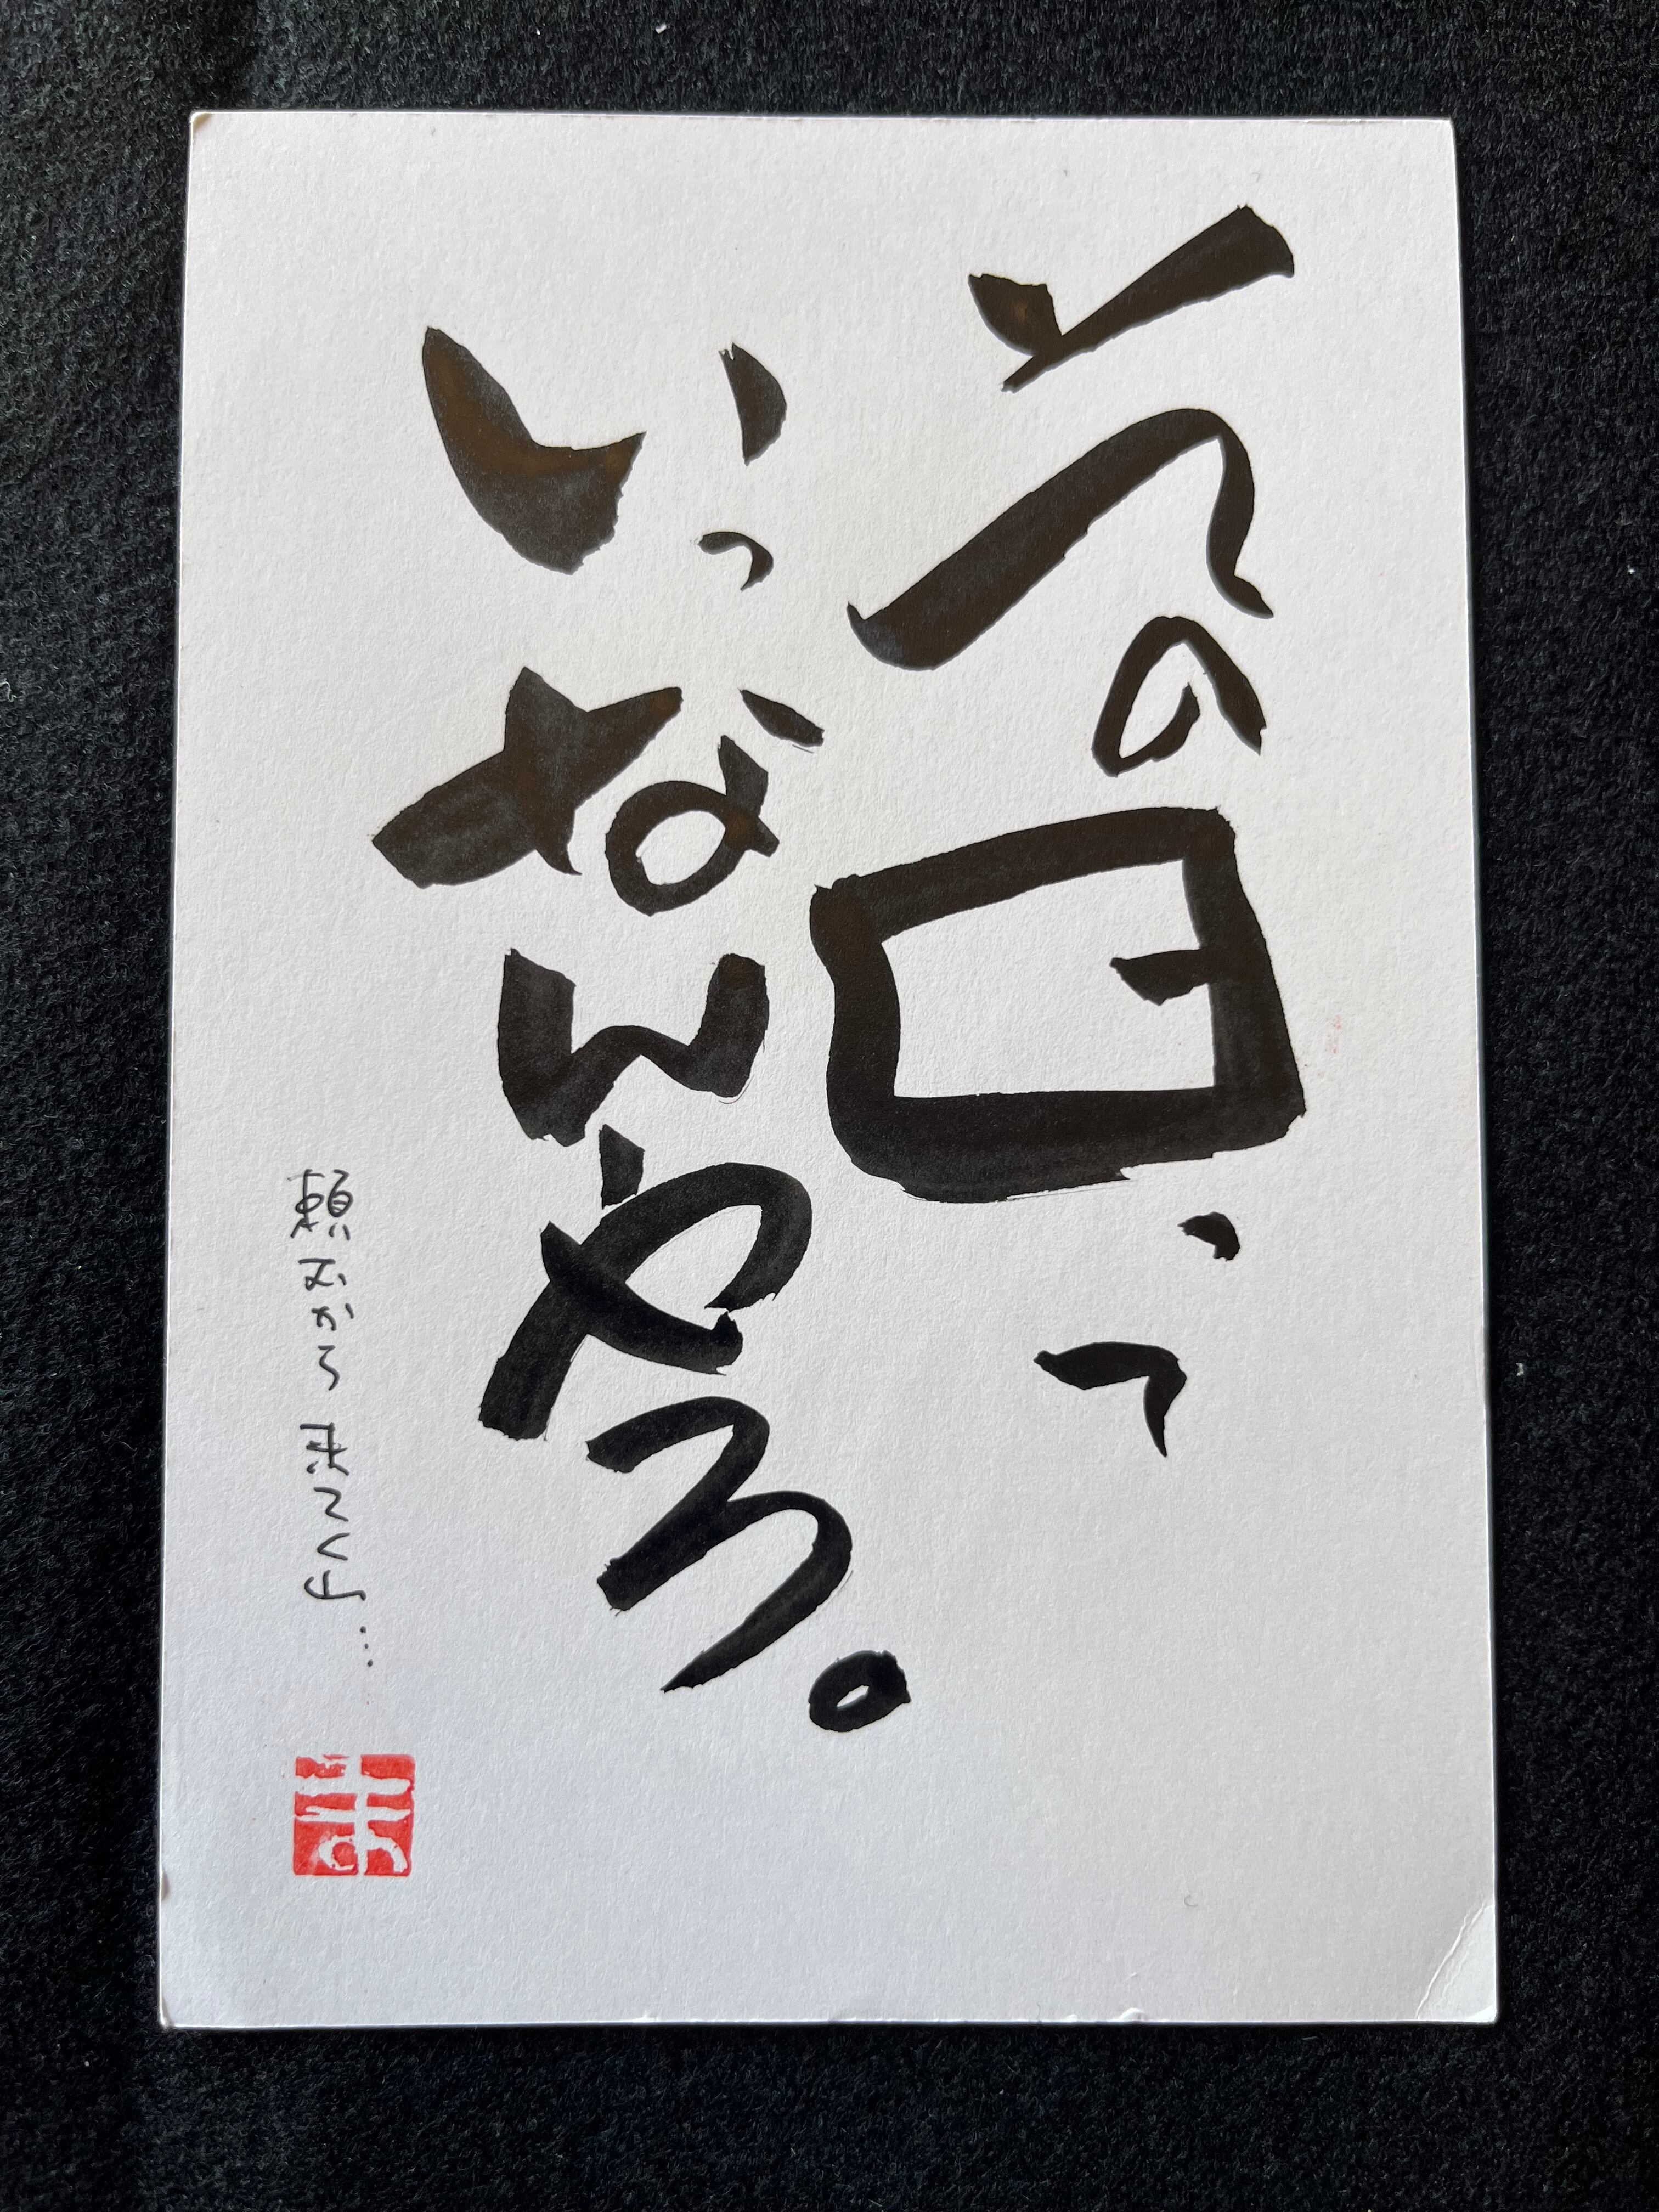 その日、って
いつなんやろ。
頼むから来てくよ…